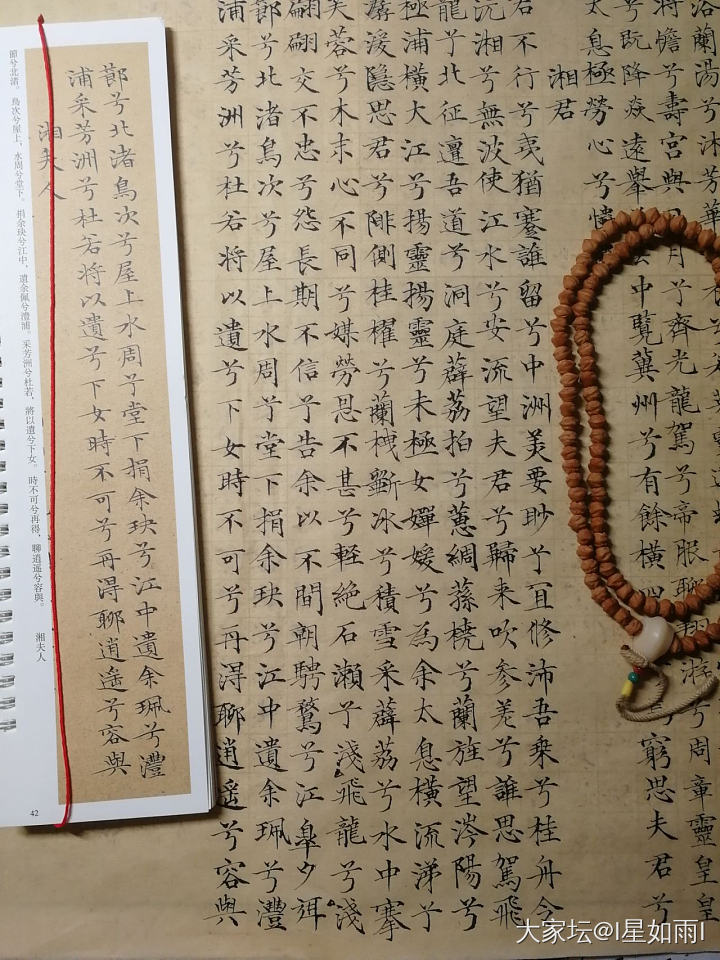 浴蘭湯兮沐芳華
將憺兮壽宮與日月兮齊光龍駕兮帝服聊翱游兮周章靈皇皇
兮既降焱遠舉雲中覽冀州兮有餘橫四窮思夫君兮
太息極勞心兮
湘君
君不行兮夷猶蹇誰留兮中洲美要眇兮宜修沛吾乘兮桂舟令
沅湘兮無波使江水兮安流望夫君兮歸來吹參差兮誰思駕飛
龍兮北征邅吾道兮洞庭薜荔拍兮蕙綢蓀橈兮蘭旌望涔陽兮
極浦橫大江兮揚靈揚靈兮未極女嬋媛兮為余太息橫流涕兮
潺湲隱思君兮陫側桂櫂兮蘭枻斲冰兮積雪采薜荔兮水中搴
芙蓉兮木末心不同兮媒勞恩不甚兮輕絕石瀨兮淺飛龍兮淺
翩翩交不忠兮怨長期不信兮告余以不間朝騁騖兮江皋夕弭
節兮北渚鳥次兮屋上水周兮堂下捐余玦兮江中遺余珮兮澧
浦采芳洲兮杜若將以遺兮下女時不可兮再得聊逍遙兮容與
節兮北渚鳥次兮屋上水周兮堂下捐余玦兮江中遺余珮兮澧
浦采芳洲兮杜若將以遺兮下女時不可兮再得聊逍遙兮容與
湘夫人
節兮北渚。鳥次兮屋上，水周兮堂下。捐余玦兮江中，遺余佩兮澧浦。采芳洲兮杜若，將以遺兮下女。時不可兮再得，聊逍遥兮容與。
湘夫人
42
大家坛@l星如雨l